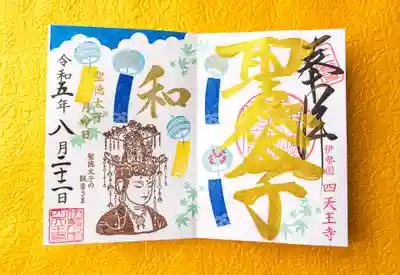 奉拝
聖徳太子
伊勢国 四天王寺
和
聖徳太子
月命日
聖徳太子の
観音さま
令和五年八月二十二日